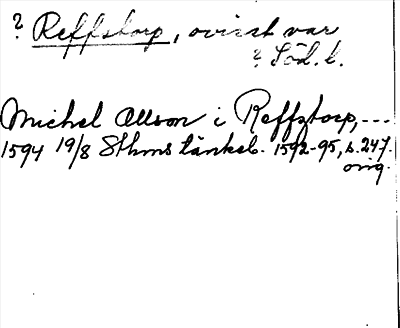 ? Reffstorp, ovisst var
? Söd. l.
Michel Allson i Reffztorp, ---
1594 19/8 Sthms tänkeb. 1592-95, s. 247.
orig.